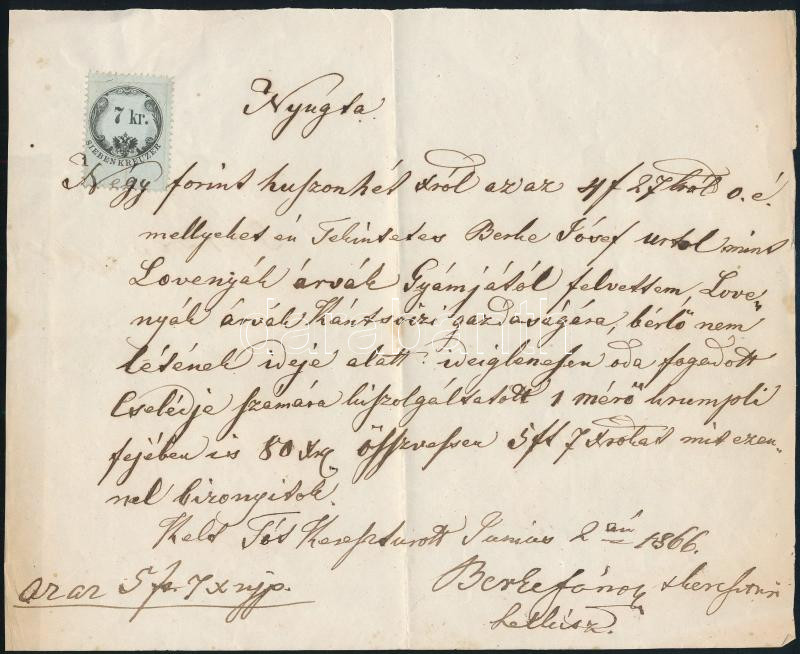 Nyugta
7 kr.
SIEBEN KREUZER
Négy forint huszonhét xról az az 4f 27 o. é.
mellyeket én Tekintetes Berke Jósef urtol mint
Lovenyák árvák Gyámjától felvettem, Love„
nyák árvák gazdaságára, bérlő nem
létének ideje alatt ideiglenessen oda fogadott
Cselédje számára kiszolgáltatott 1 mérő krumpli
fejében is 80 xr Összvessen 5ft 7 xrokat mit ezen„
nel bizonyitok.
Kelt Tót Keresturott Junius 2án 1866.
az az 5 fr 7 x
Berke János